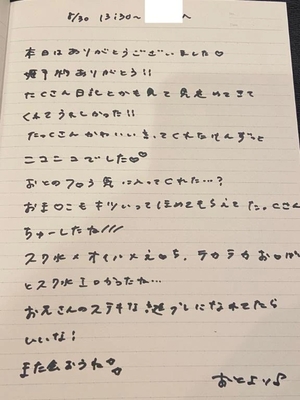 5/30 13:30〜 へ
本日はありがとうございました♡
ありがとう!!
たくさん日記とかも見て見定めてきて
くれてうれしかった!!
たっくさんかわいい言ってくれたけんずっと
ニコニコでした♡♡
おとの 気に入ってくれた…?
おま○こもキツいってほめてもらえてた。くさん
ちゅーしたね///
スク水×オイル×えち、テカテカお
とスク水エロかったね…
お兄さんのステキな になれてたら
いいな!
また会おうね♡
おとより♪